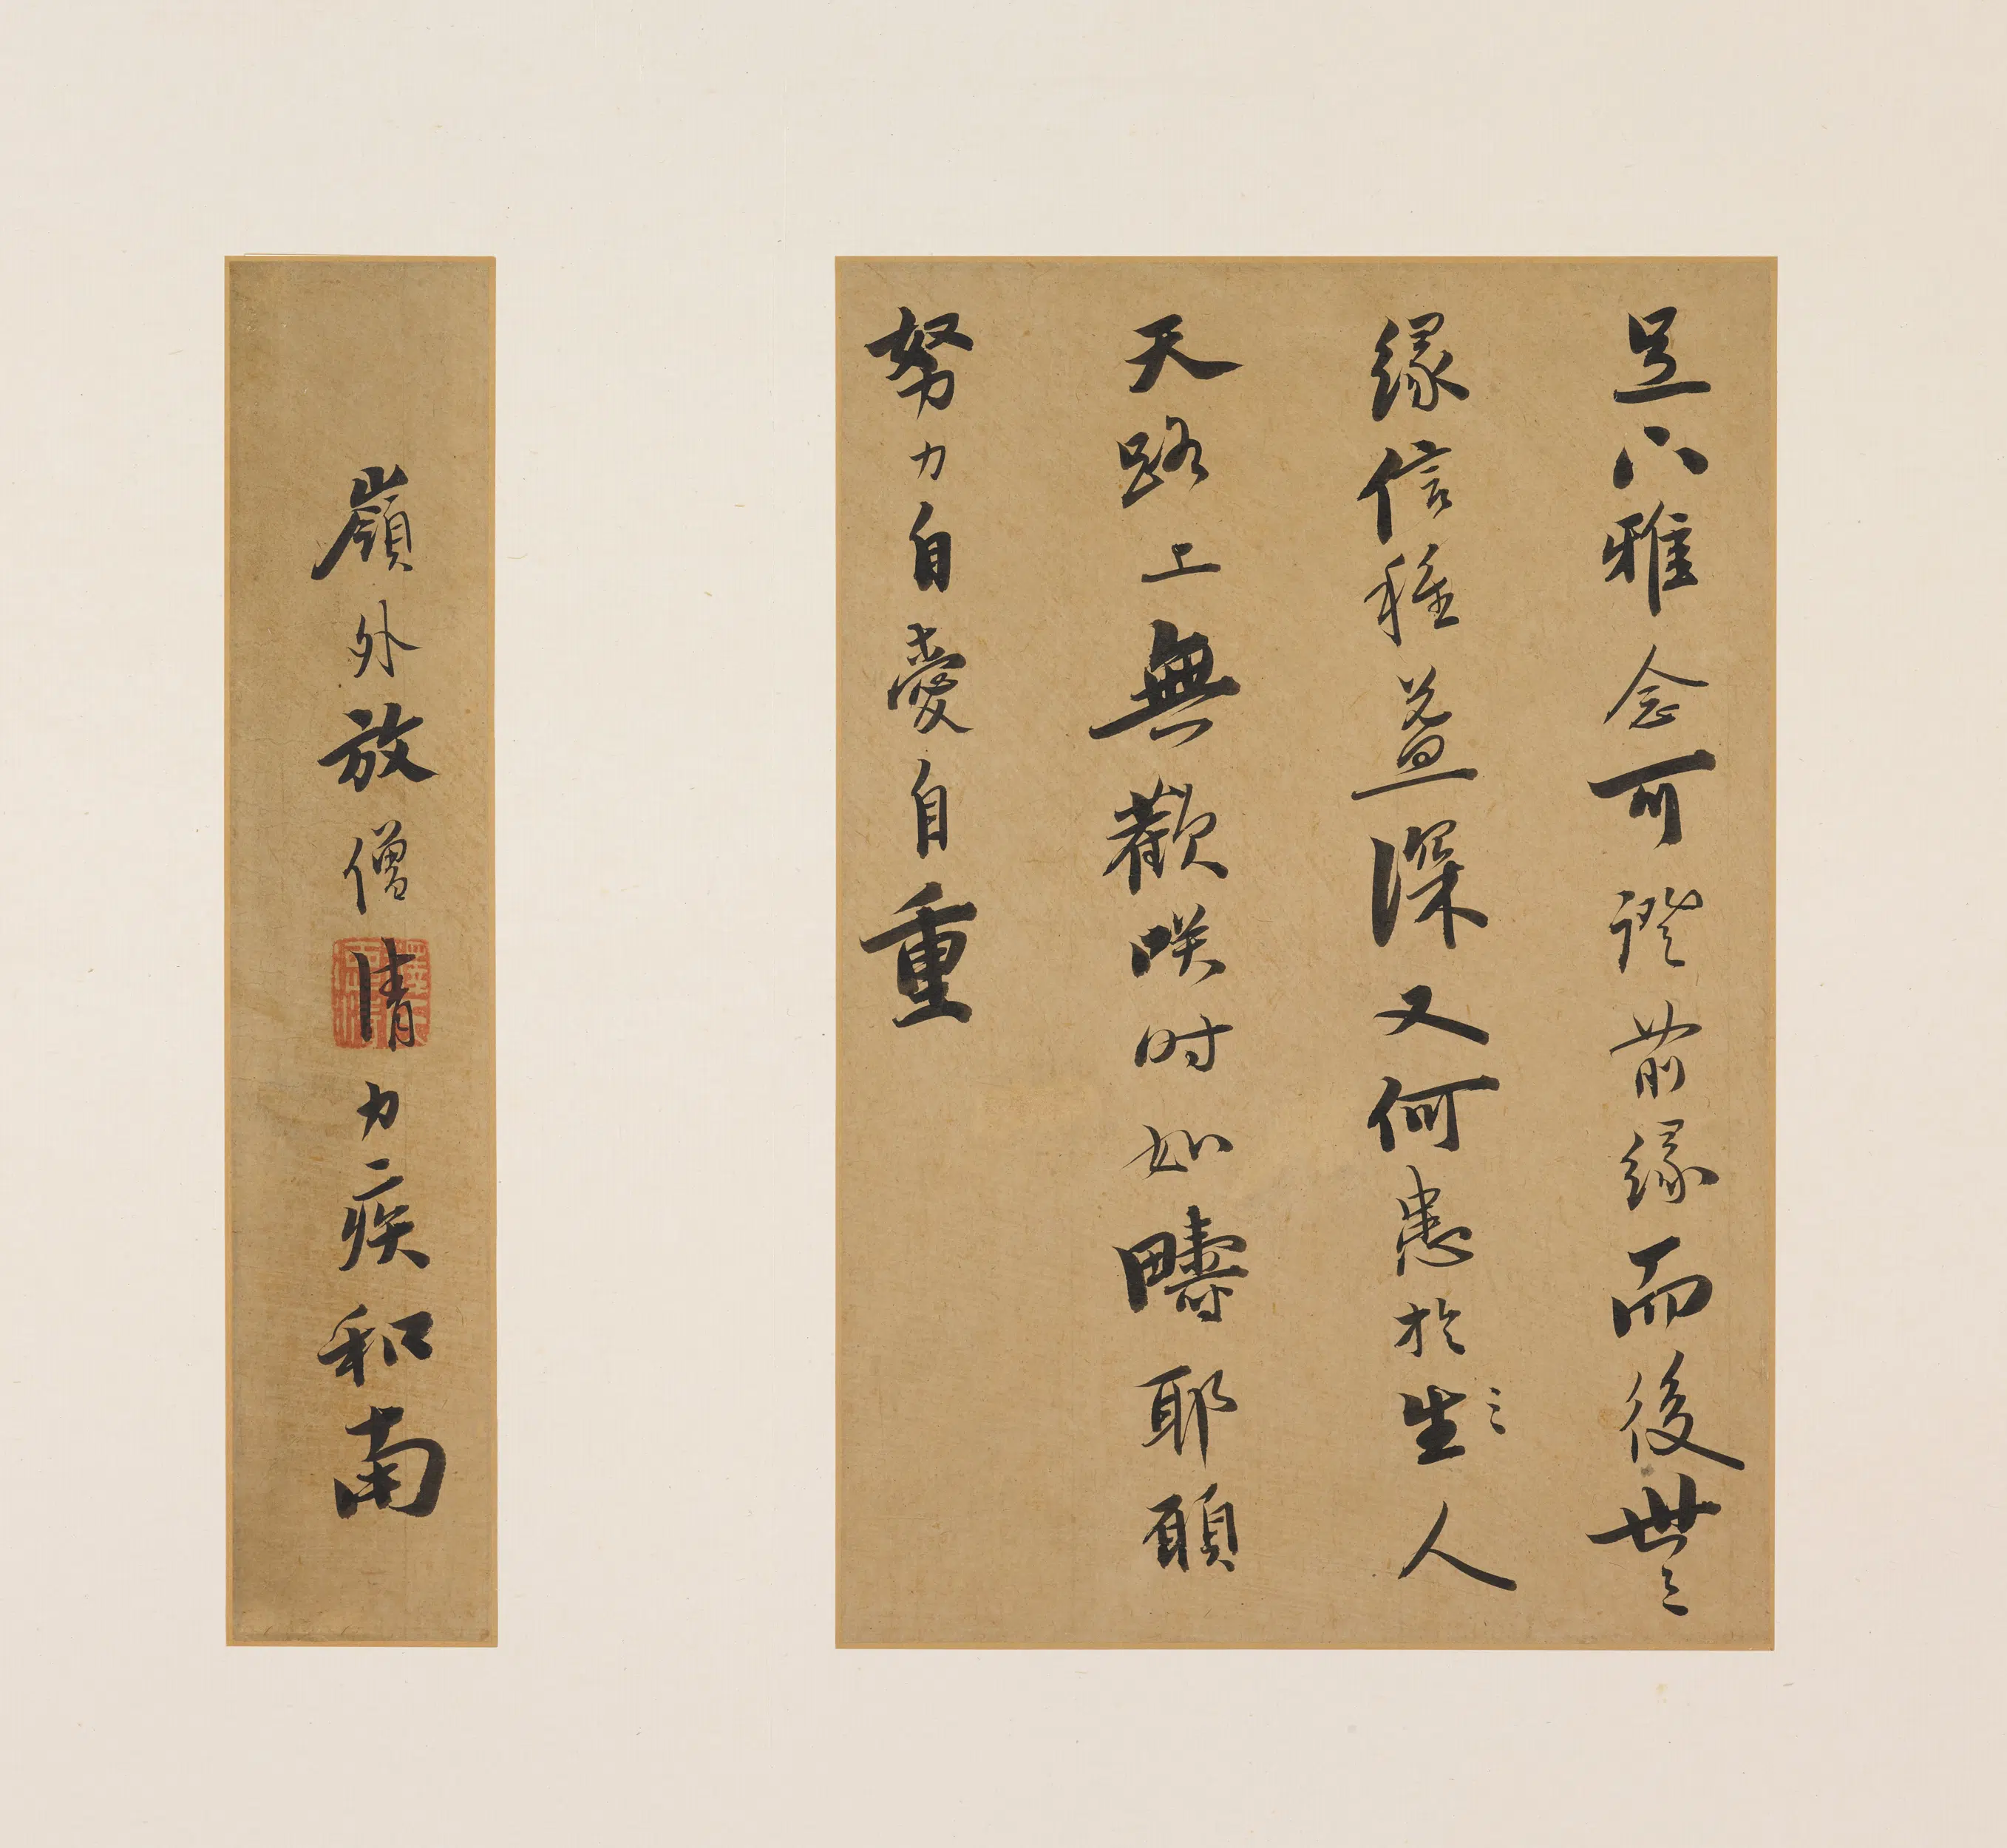 足下雅念可證前緣而後世〻
緣信種益深又何患於生〻人
天路上無歡咲時如疇耶願
努力自愛自重
嶺外放僧清力疾和南